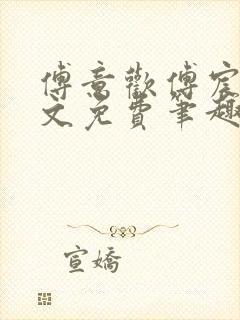 傅意歡傅宸
文免費筆趣
宣嬌